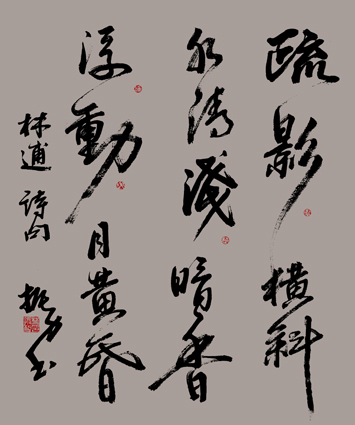 疏影横斜
水清淺暗香
浮動月黄昏
林逋詩句
振方书